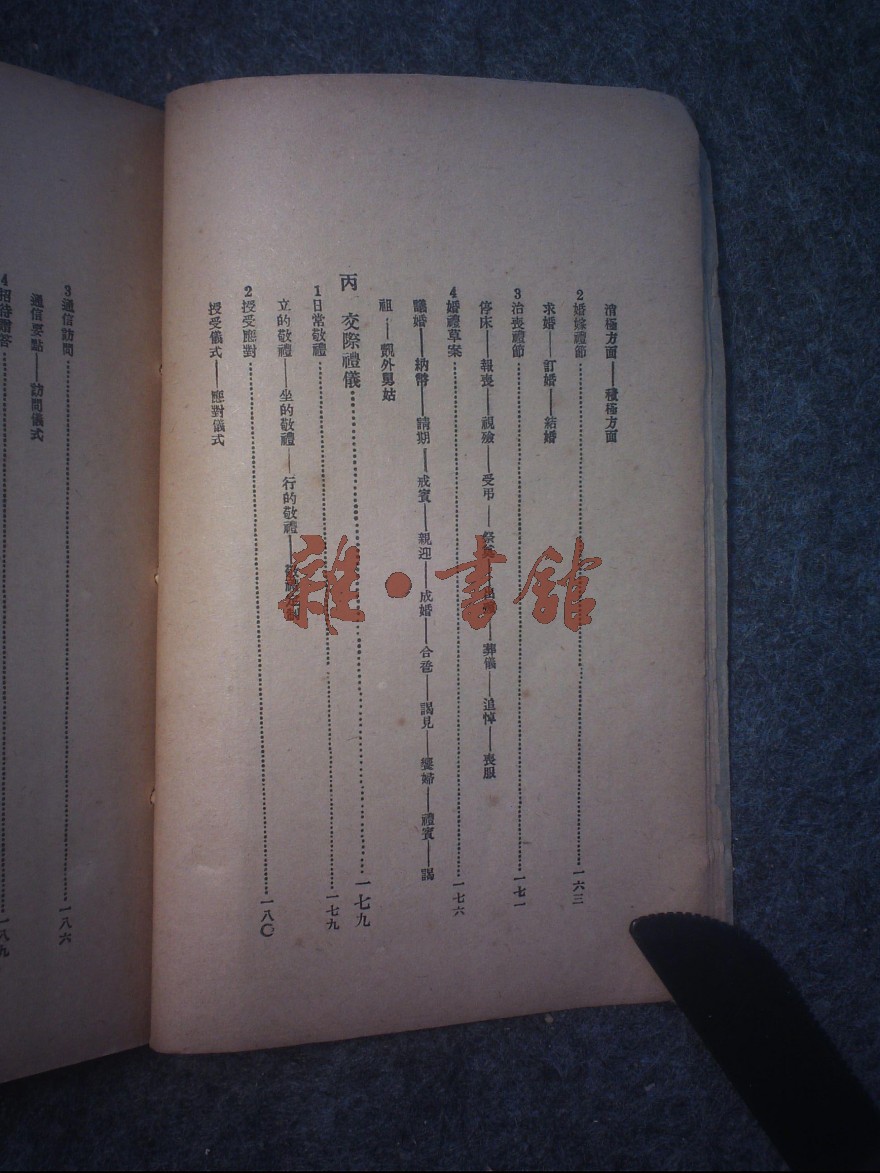 消極方面——積極方面
2婚嫁禮節…………一六三
求婚——訂婚——結婚
3治喪禮節…………一七一
停床——報喪——視殮——受弔——祭——葬儀——追悼——喪服
4婚禮草案…………一七六
議婚——納幣——請期——戒賓——親迎——成婚——合卺——謁見——饗婦——禮賓——謁
祖——覿外舅姑
丙 交際禮儀…………一七九
1日常敬禮…………一七九
立的敬禮——坐的敬禮——行的敬禮——
2授受應對…………一八〇
授受儀式——應對儀式
3通信訪問…………一八六
通信要點——訪問儀式
4招待贈答…………一八九
雜·書館